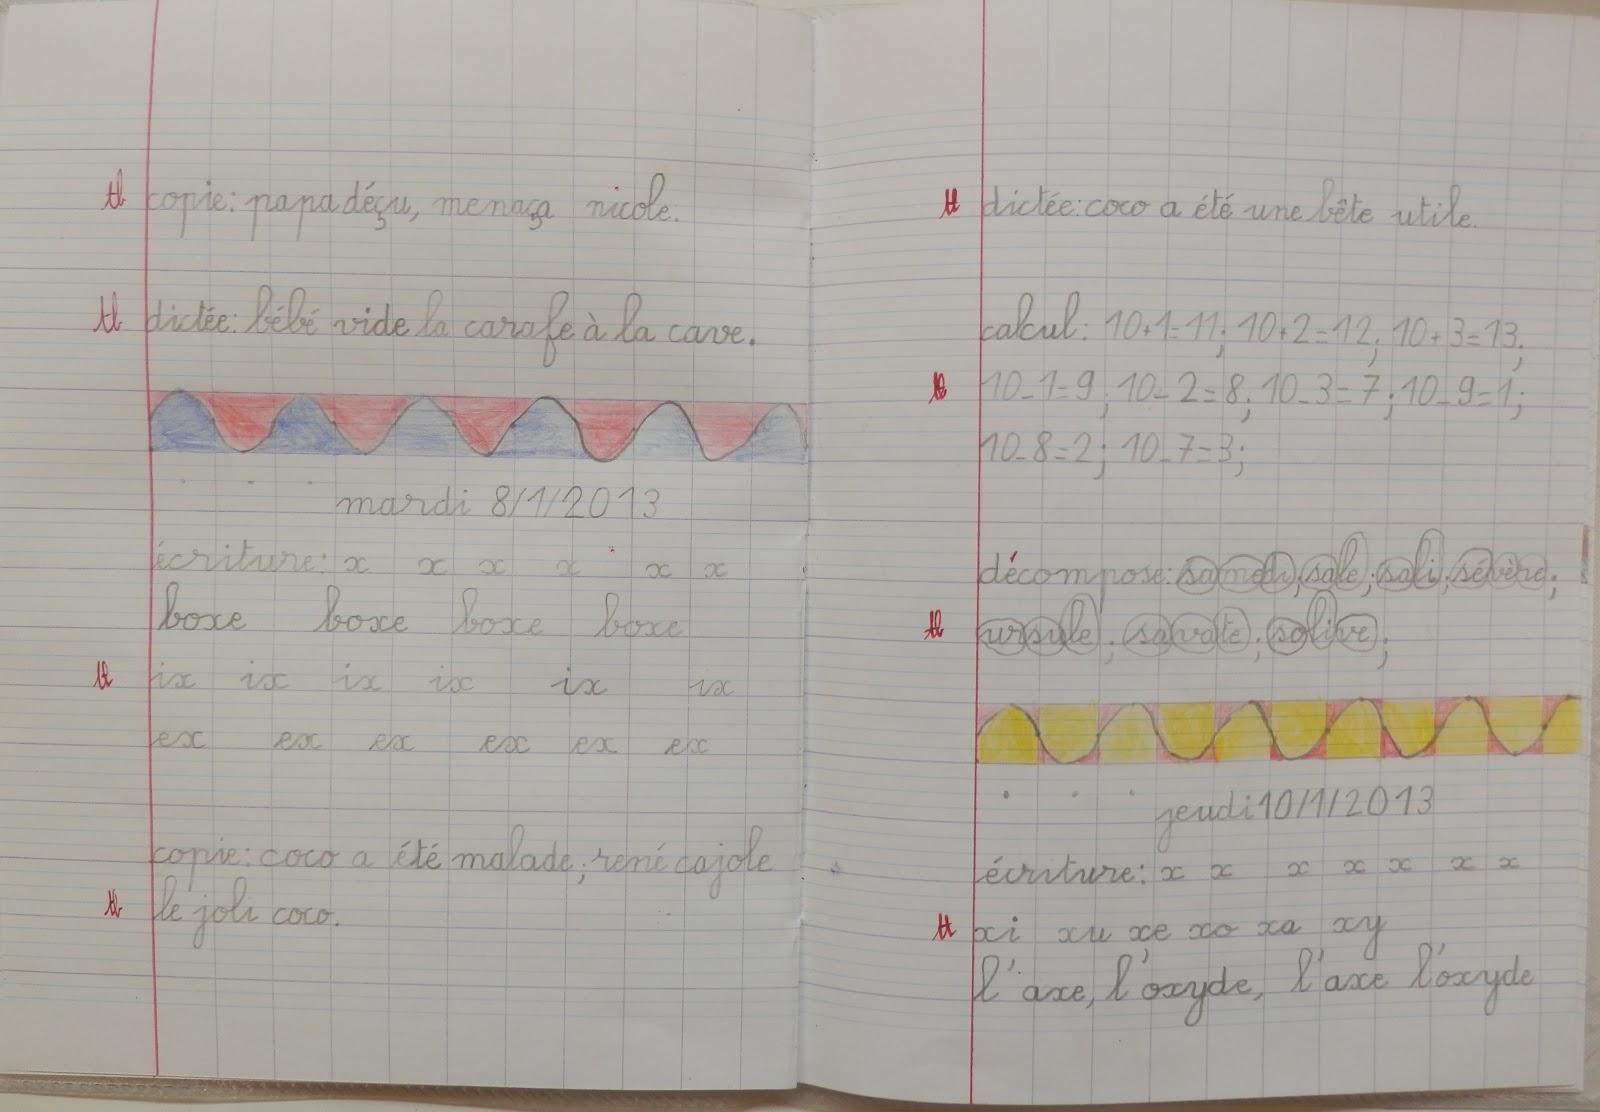 tb copie: papa déçu, menaça nicole.
tb dictée: bébé vide la carafe à la cave.
mardi 8/1/2013
écriture: x x x x x x
boxe boxe boxe boxe
tb ix ix ix ix ix ix
ex ex ex ex ex ex
copie: coco a été malade; rené cajole
tb le joli coco.
tb dictée: coco a été une bête utile.
calcul: 10+1=11; 10+2=12; 10+3=13;
tb 10-1=9; 10-2=8; 10-3=7; 10-9=1;
10-8=2; 10-7=3;
décompose: samedi; sale; sali; sévère;
tb ursule; savate; solive;
jeudi 10/1/2013
écriture: x x x x x x x
tb xi xu xe xo xa xy
l'axe, l'oxyde, l'axe l'oxyde